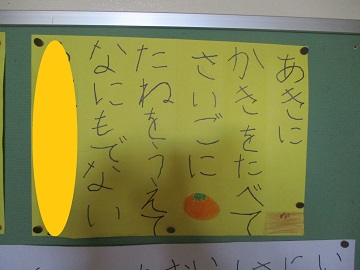 あきに
かきをたべて
さいごに
たねをうえて
なにもでない